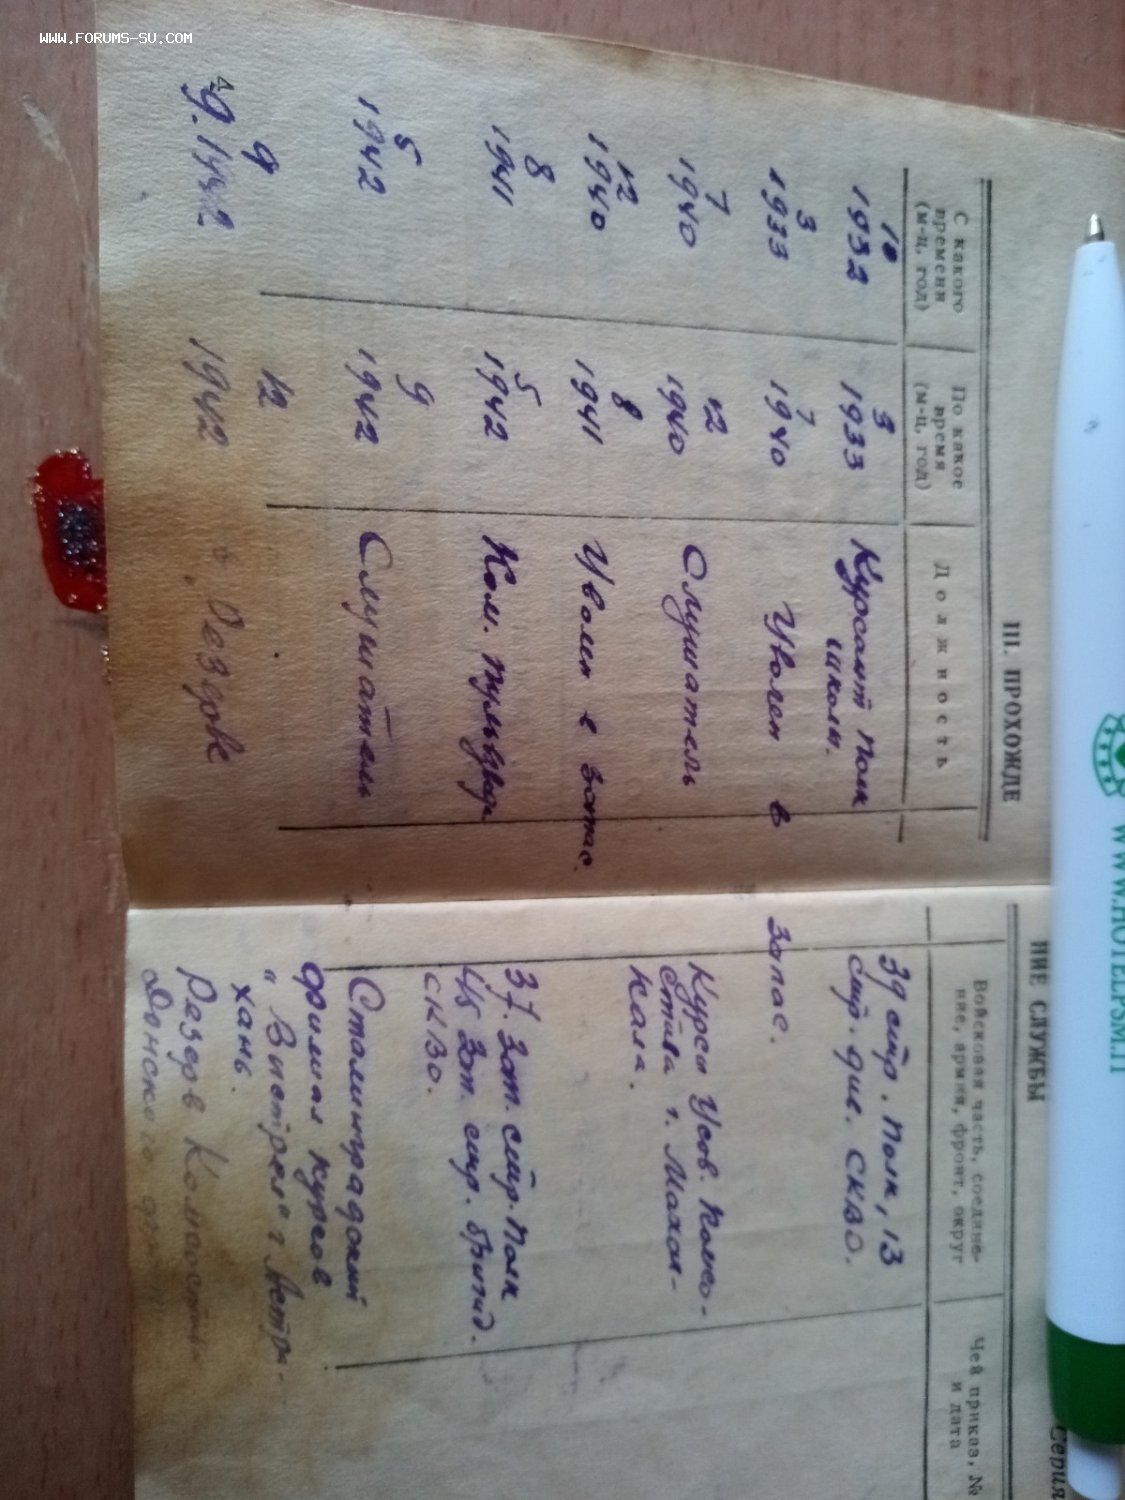 WWW.FORUMS-SU.COM
III. ПРОХОЖДЕ
С какого
времени
(м-ц, год)
По какое
время
(м-ц, год)
Должность
10
1932
3
1933
Курсант полк
школы.
3
1933
7
1940
Уволен в
7
1940
12
1940
Слушатель
12
1940
8
1941
Уволен в запас.
8
1941
5
1942
Ком. пульвзвод
5
1942
9
1942
Слушатель
9
9.1942
12
1942
в резерве
НИЕ СЛУЖБЫ
Серия
Войсковая часть, соедине-
ние, армия, фронт, округ
Чей приказ, №
и дата
39 стр. полк, 13
стр. див. СКВО.
запас.
Курсы Усов. Комсо-
става г. Махач-
кала.
37. зап. стр. полк
45 зап. стр. бригад.
СКВО.
Сталинградский
филиал курсов
"Выстрел" г Астра-
хань.
Резерв Комсостава
Донского
WWW.HOTELPSM.IT